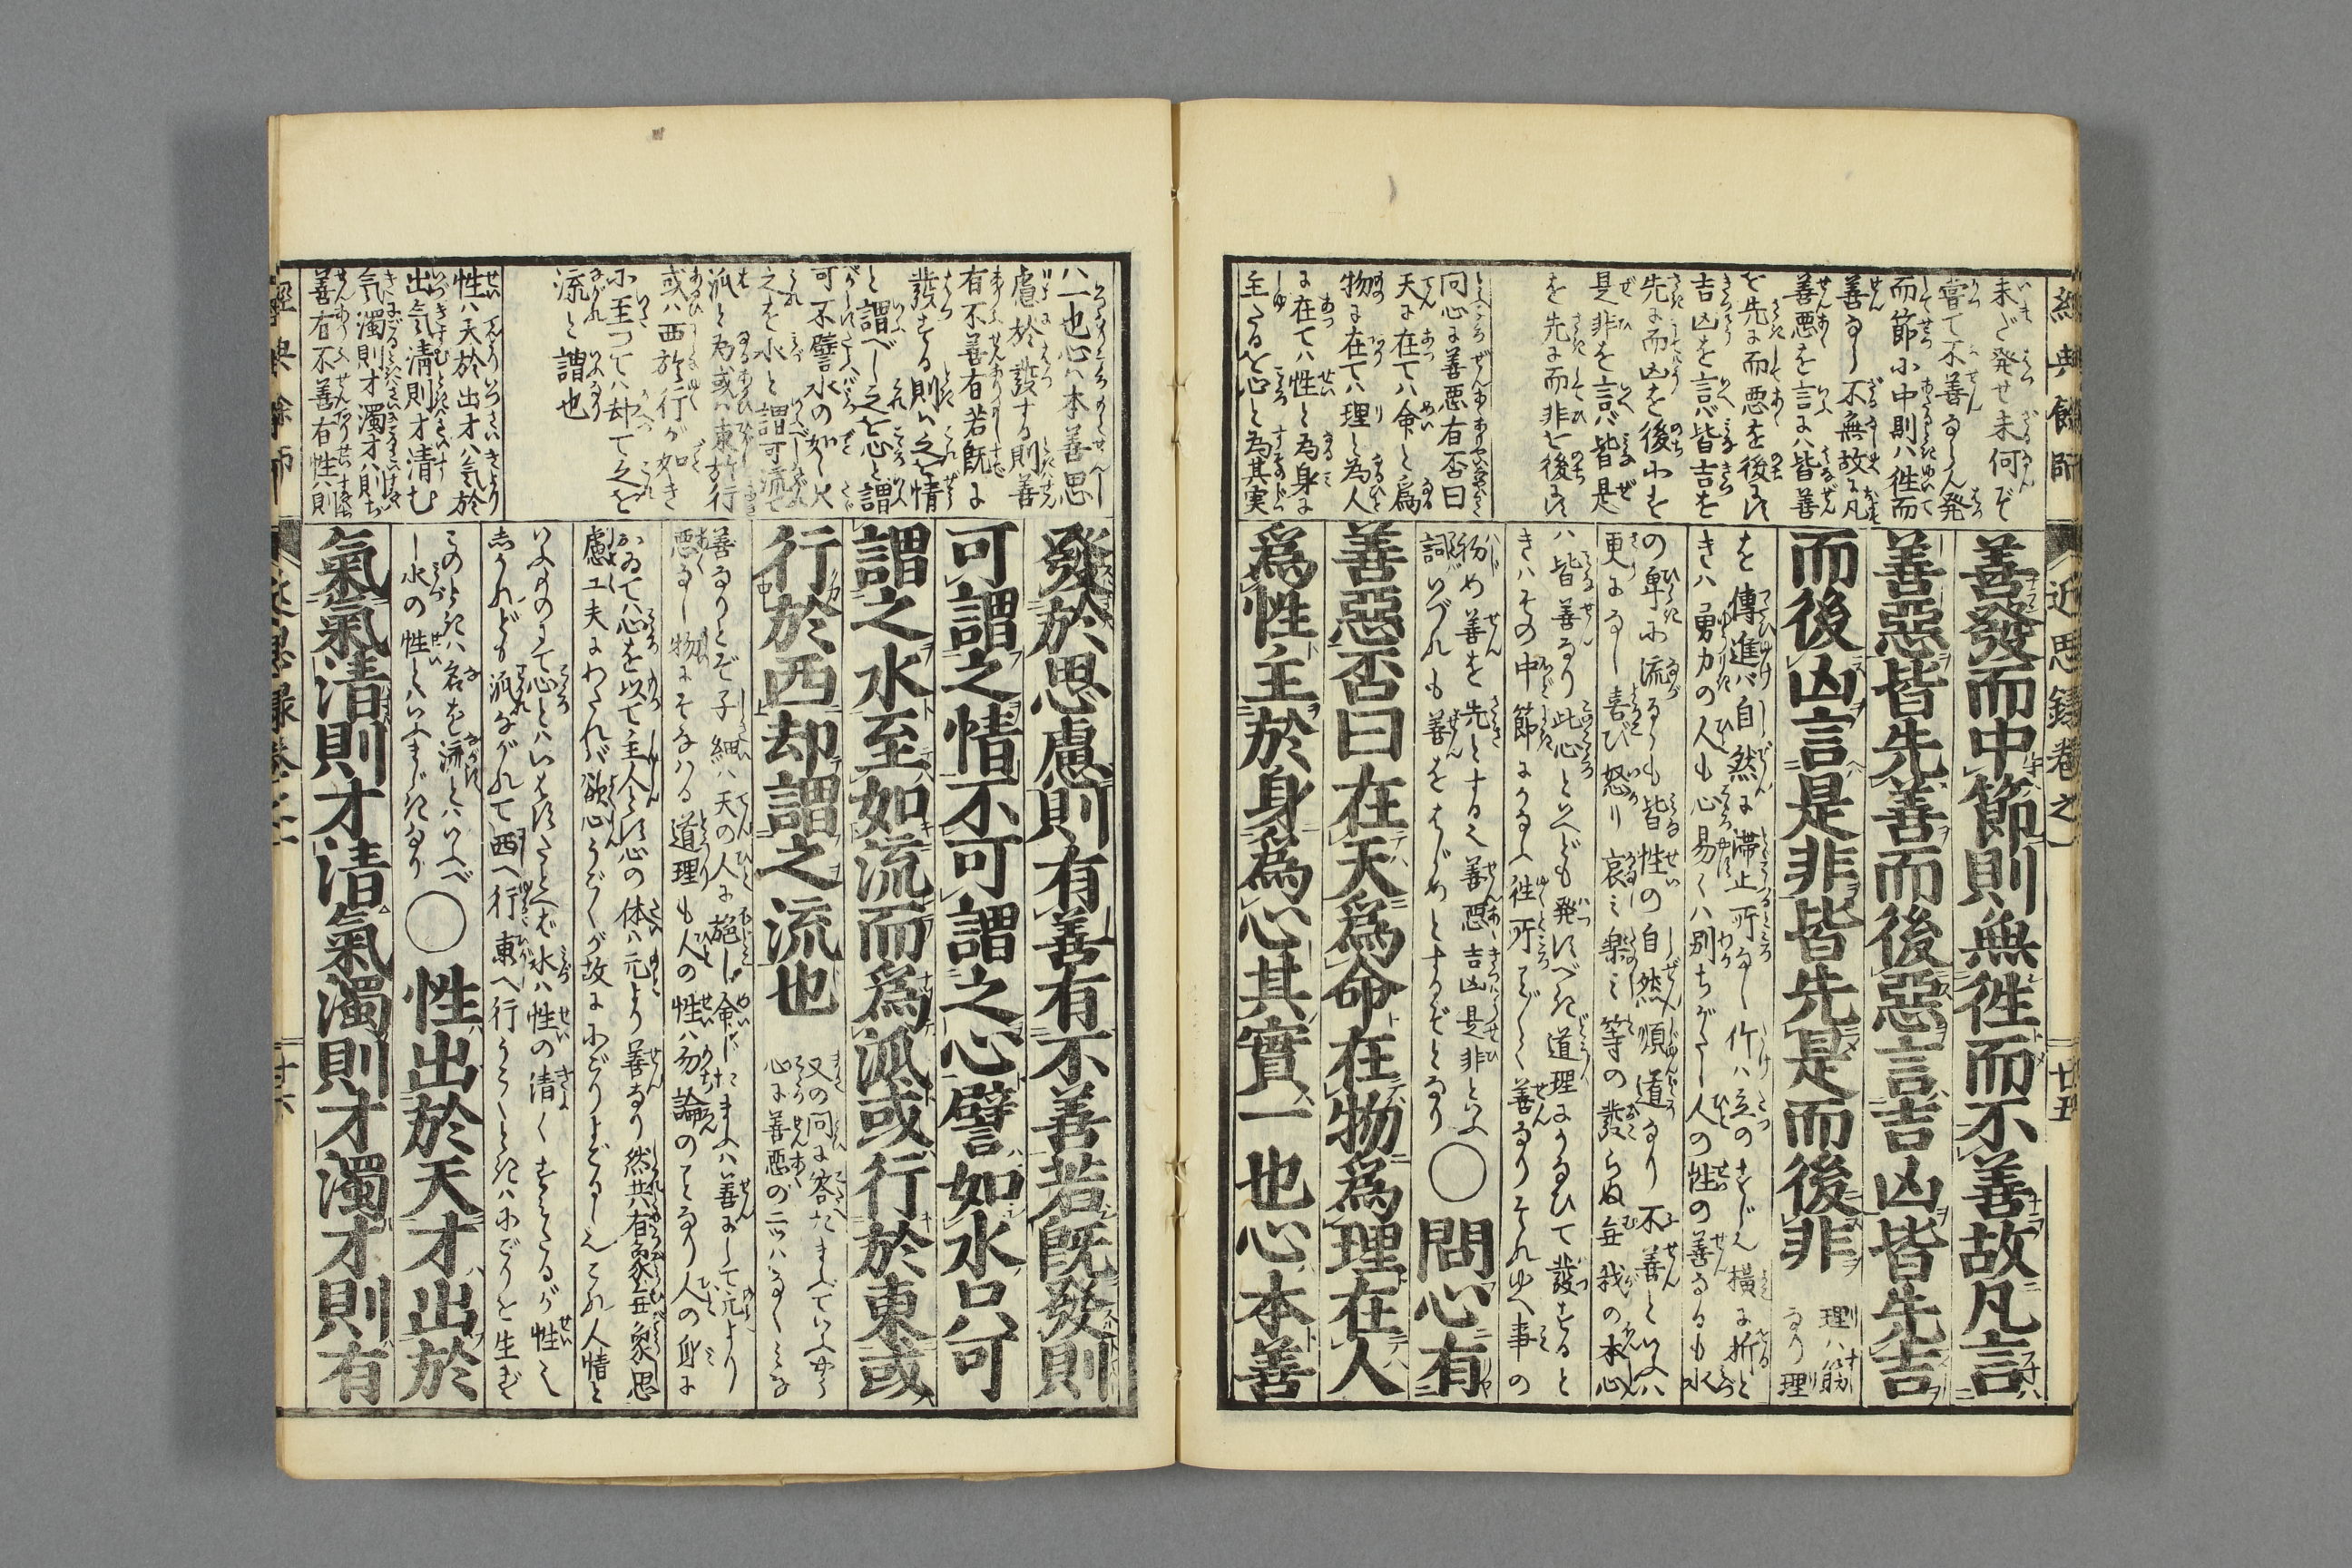 經典餘師
近思録卷之一
廿五
未だ発せ未何ぞ
嘗て不善ならん発
而節に中則ハ徃而
善なら不無故に凡
善悪を言にハ皆善
を先に而悪を後にす
吉凶を言バ皆吉を
先に而凶を後にす
是非を言バ皆是
を先に而非を後にす
問心に善悪有否曰
天に在てハ命と為
物に在てハ理と為人
に在てハ性と為身に
主たるを心と為其実
善發而中節則無徃而不善故凡言
善惡皆先善而後惡言吉凶皆先吉
而後凶言是非皆先是而後非
理ハ筋
なり理
を傳進バ自然に滞止所なし竹ハ立のすじえ横に折と
きハ勇力の人も心易くハ別ちがたし人の性の善なるも水
の卑に流るゝも皆性の自然順道なり不善といふハ
更になし喜び怒り哀ミ楽ミ等の發らぬ毎我の本心
ハ皆善なり此心といへども発すべき道理にかなひて發すると
きハその中節にかなふ徃所ことごとく善なりそれゆへ事の
初め善を先とする之善悪吉凶是非といふ
詞いづれも善をはじめとするぞとなり
◯問心有
善惡否曰在天爲命在物爲理在人
爲性主於身爲心其實一也心本善
ハ一也心ハ本善思
慮於發する則善
有不善有若既に
發する則ハ之を情
と謂べし之を心と謂
可不譬水の如し只
之を水と謂可流て
派と為或ハ東於行
或ハ西於行が如き
に至つてハ却て之を
流と謂也
性ハ天於出才ハ気於
出気清則才清む
気濁則才濁才ハ則ち
善有不善有性ハ則
發於思慮則有善有不善若既發則
可謂之情不可謂之心譬如水只可
謂之水至如流而爲派或行於東或
行於西却謂之流也
又の問に答たまふていふやう
心に善悪の二ツハなくミな
善なりとぞ子細ハ天の人に施し命じたまふハ善にして元より
悪なし物にそなハる道理も人の性ハ勿論のことなり人の身に
おゐてハ心を以て主人とす心の体ハ元より善なり然共有象無象思
慮工夫にわたれバ欲心うごくが故ににごりよどるしえこれ人情と
いふものにて心とハいはすたとへば水ハ性の清くすミたるが性之
しかれども派ながれて西へ行東へ行うくときハにごりを生ず
このときハ名を流とハいふべ
し水の性とハいふまじきなり
◯性出於天才出於
氣氣清則才清氣濁則才濁才則有
經典餘師
近思録卷之一
廿六